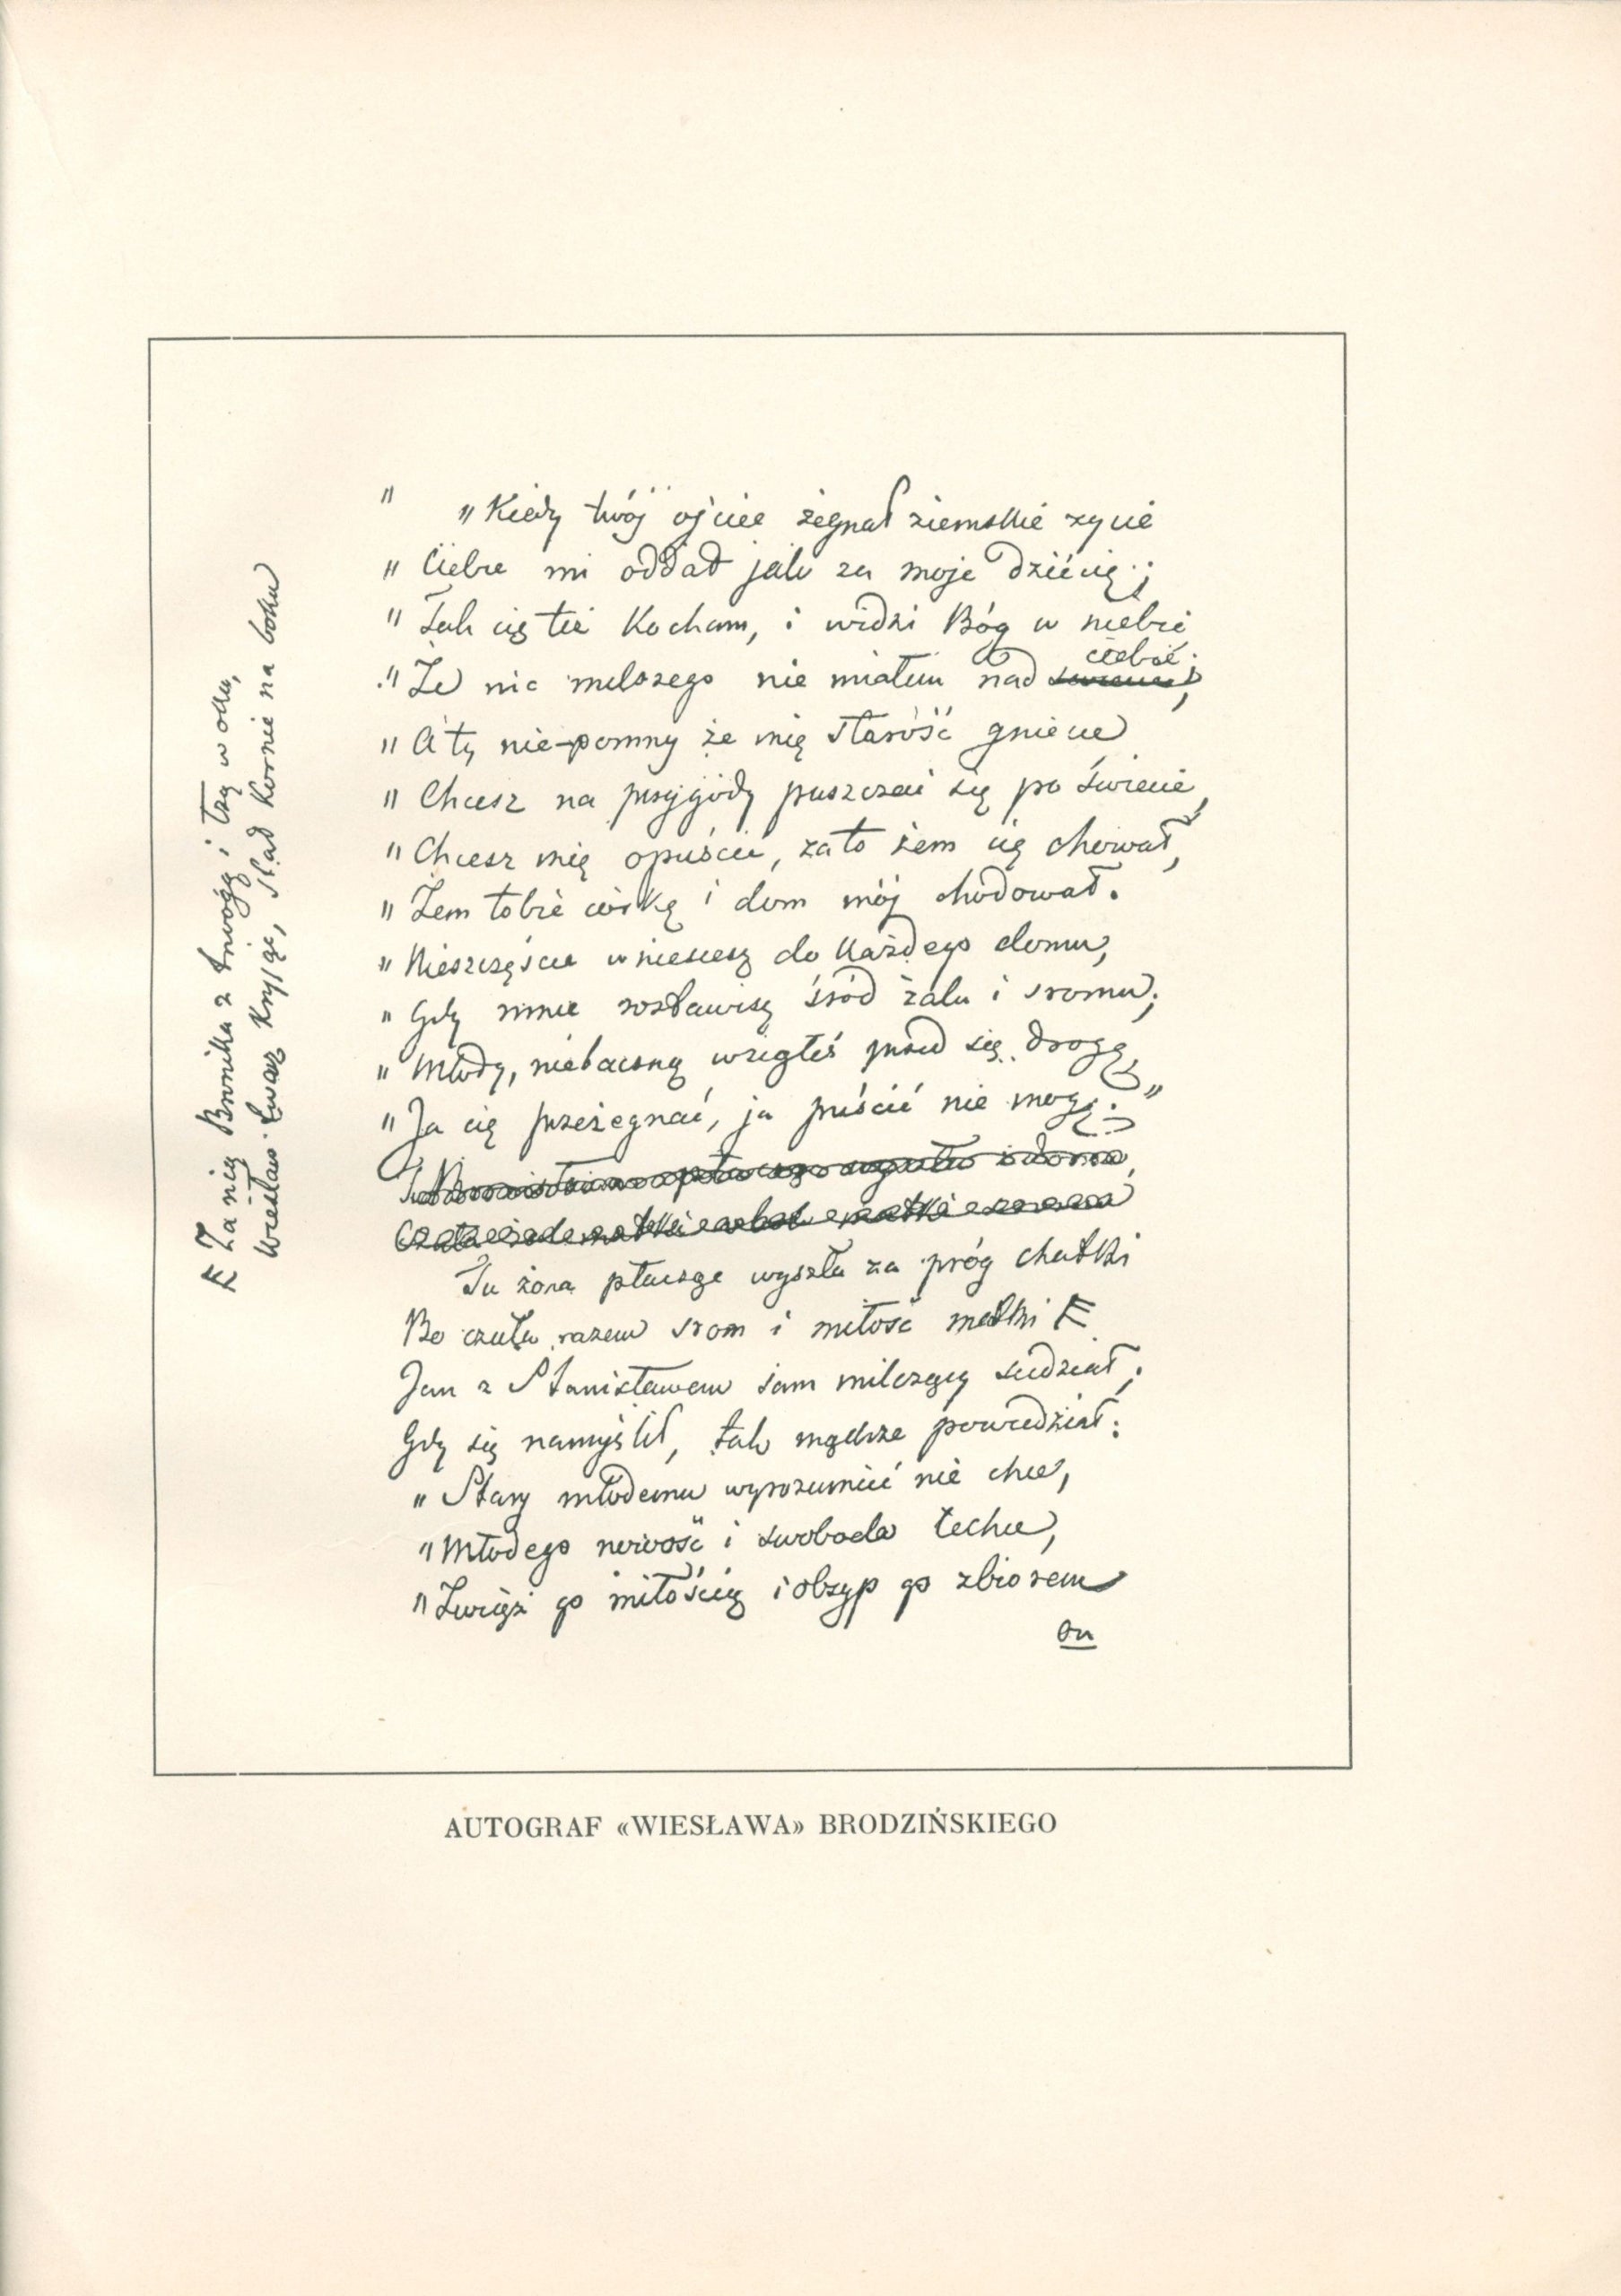 " „Kiedy twój ojciec żegnał ziemskie zycie
„ Ciebie mi oddał jak za moje dziécię;
„ Tak cię też Kocham, i widzi Bóg w niebie
„ Że nic milszego nie miałem nad
ciebie;
„ A ty nie-pomny że mię starość gniecie
„ Chcesz na przygody puszczać się po świecie,
„ Chcesz mię opuścić, za to żem cię chował,
„ Żem tobie córkę i dom mój chodował.
„ Nieszczęście wniesiesz do każdego domu,
„ Gdy mnie zostawisz śród żalu i sromu;
„ Młody, niebaczną wziąłeś przed się drogę,
„ Ja cię przeżegnać, ja puścić nie mogę."
Tu żona płacząc wyszła za próg chatki
Bo czuła razem srom i miłość matki F
Jan z Stanisławem sam milczący siedział;
Gdy się namyślił, tak mądrze powiedział:
„ Stary młodemu wyrozumieć nie chce,
„ Młodego nowość i swoboda łechce,
„ Zwiąż go miłością i obsyp go zbiorem
on
F Za nią Bronika z trwogą i łzą w oku,
Wiesław twarz kryjąc, siad kornie na boku
AUTOGRAF «WIESŁAWA» BRODZIŃSKIEGO